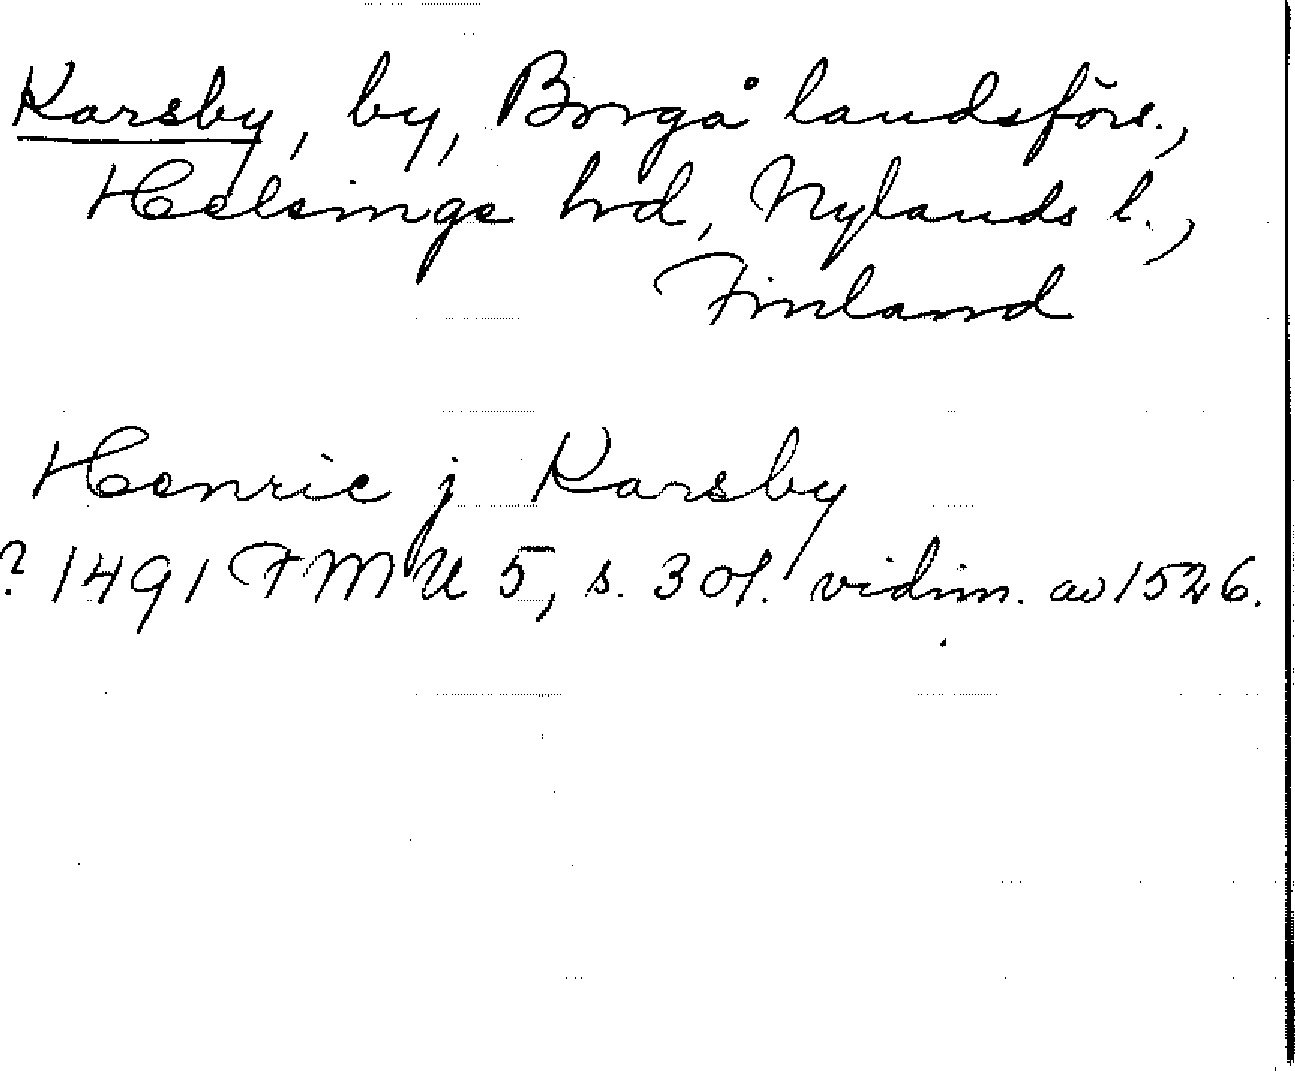 Karsby, by, Borgå landsförs.,
Helsinge hrd, Nylands l.,
Finland
Henric j Karsby
? 1491 FMU 5, s. 30f. vidim. av 1526.